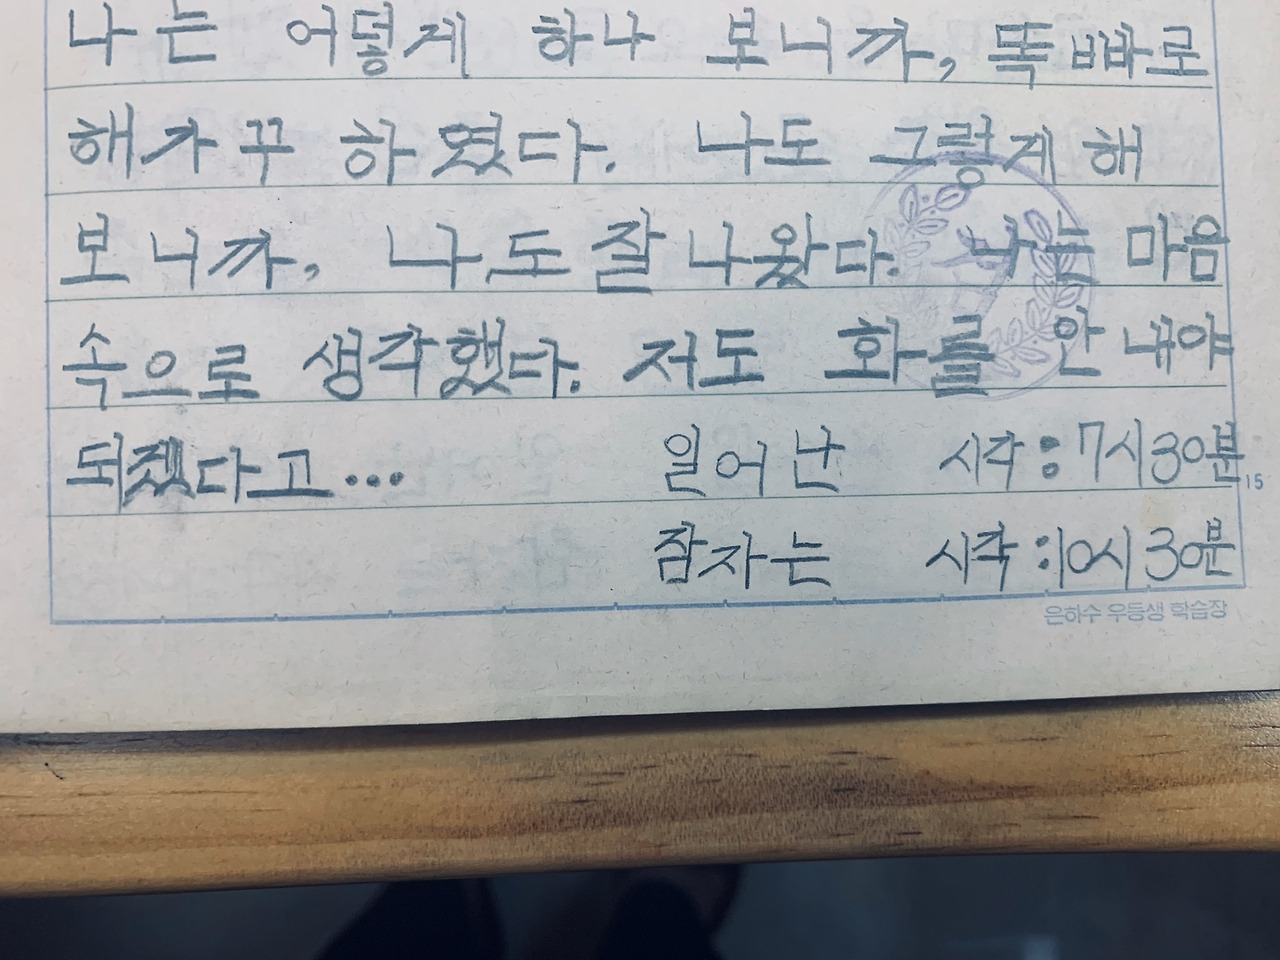 나는 어떻게 하나 보니까, 똑빠로
해가꾸 하였다. 나도 그렇게 해
보니까, 나도 잘 나왔다. 나는 마음
속으로 생각했다. 저도 화를 안 내야
되겠다고...
일어난 시각:7시30분
15
잠자는 시각:10시30분
은하수 우등생 학습장